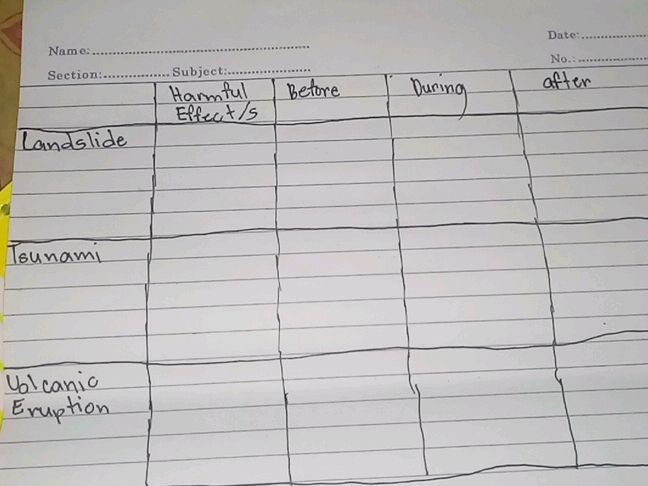 Name:
Date:
Section: Subject:
No.:
Harmful Effect/s Before During after
Landslide
Tsunami
Volcanic
Eruption